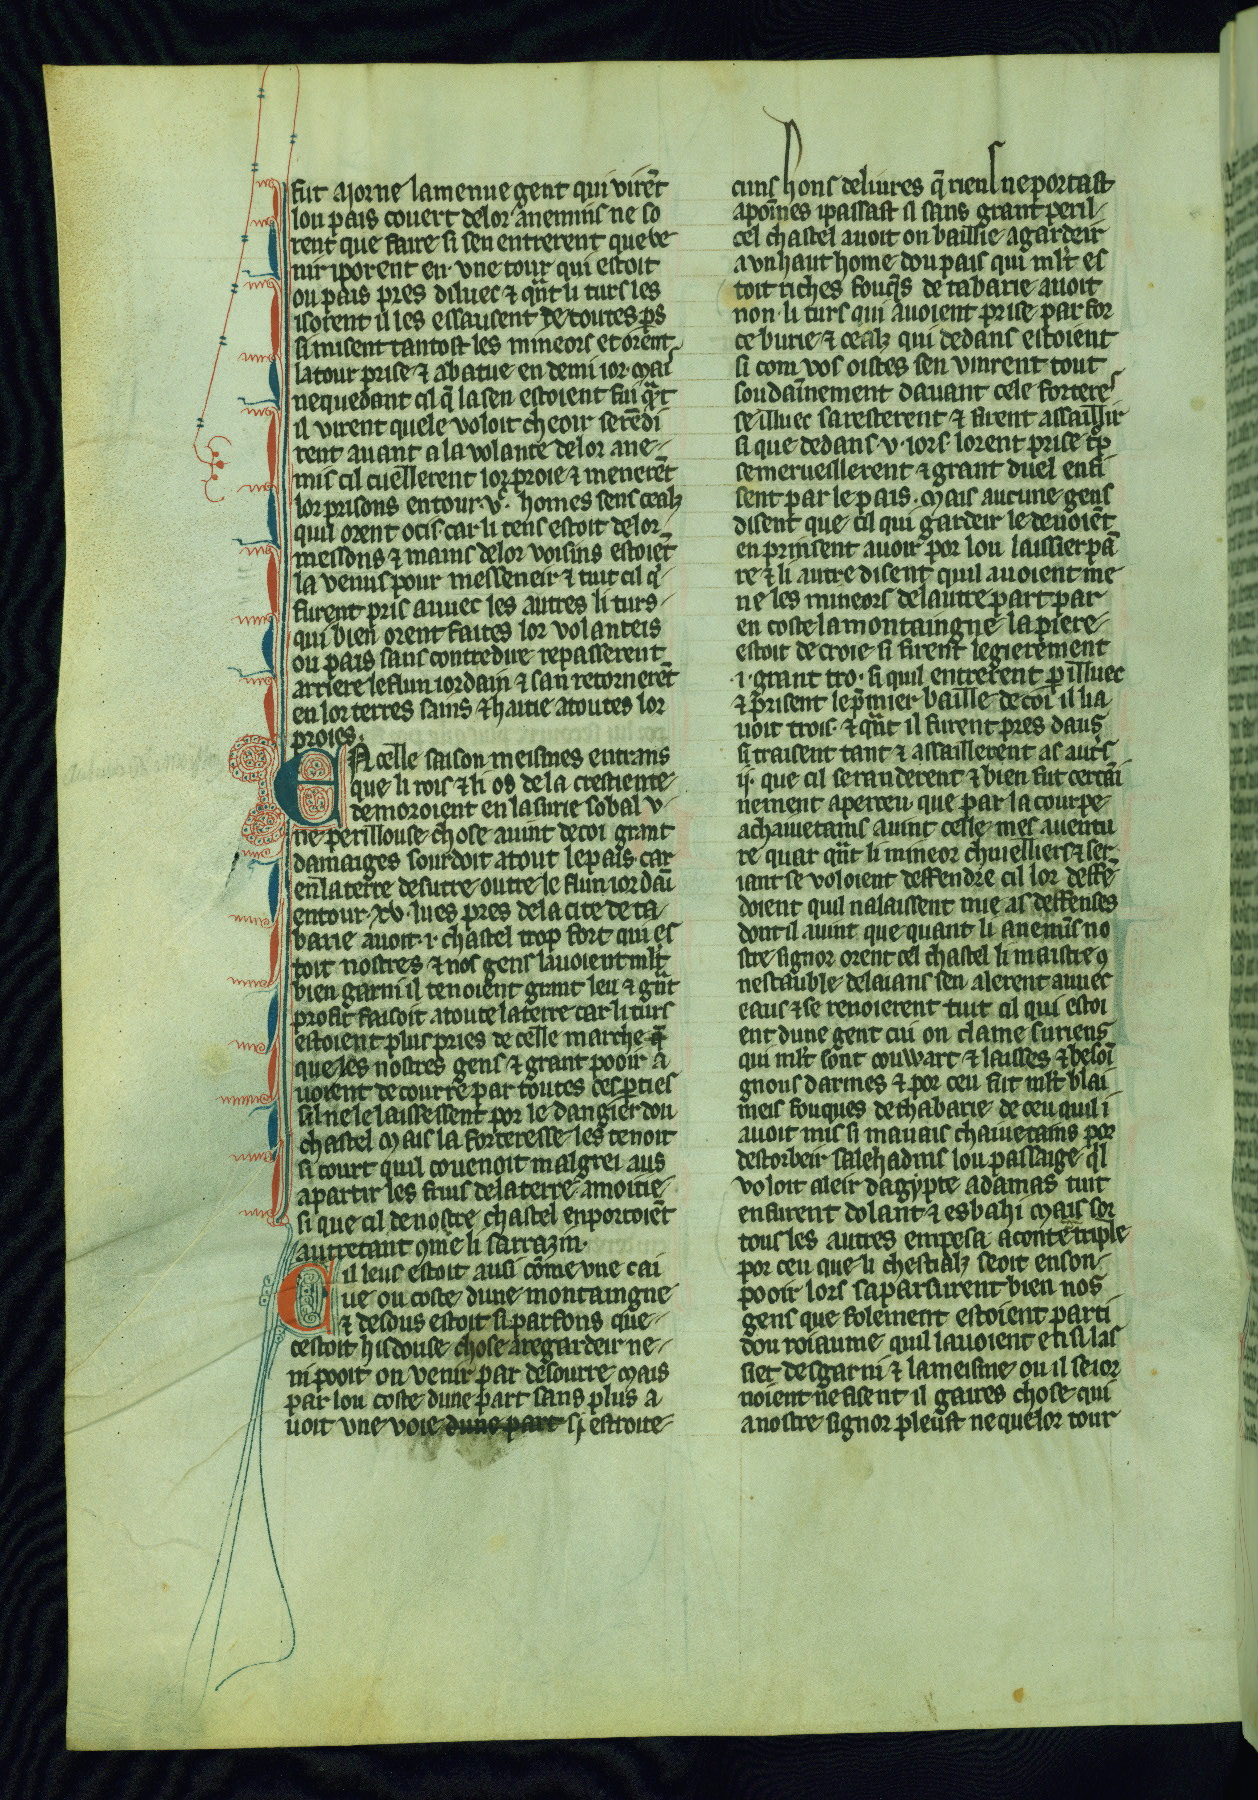 fut aiorne lamenue gent qui virēt
lou pais couert delor anemins ne so
rent que faire si sen entrerent que ve
nir iporent en vne tour qui estoit
ou pais pres diluec ⁊ qn̄t li turs les
isorent il les essausent de toutes ꝑs
si misent tantost les mineors et orent
latour prise ⁊ abatue en demi ior mais
nequedant cil q̄ lasen estoient fui qͣt
il virent quele voloit cheoir serēdi
rent auant a la volante delor ane
mis cil cuellerent lor proie ⁊ menerēt
lor prisons entour .v᷎. homes sens cealz
quil orent ocis car li tens estoit delor
messons ⁊ mains delor voisins estoiēt
la venus pour messeneir ⁊ tuit cil q̄
furent pris auuec les autres li turs
qui bien orent faites lor volanteis
ou pais sans contredire repasserent
arriere leflun iordain ⁊ san retornerēt
en lor terres sains ⁊ haitie atoutes lor
proies.
EN celle saison meismes entrans
que li rois ⁊ li os de la crestiente
demoroient en lasurie sobal v
ne perillouse chose auint decoi grant
damaiges sourdoit atout le pais car
en laterre desutre outre le flun iordāi
entour .xv. lues pres dela cite de ta
barie auoit .i. chastel trop fort qui es
toit nostres ⁊ nos gens lauoient ml̄t
bien garni il tenoient grant leu ⁊ gn̄t
profit faisoit atoute laterre car li turs
estoient plus pries de celle marche q̄
que les nostres gens ⁊ grant pooir a
uoient de courre par toutes ces ꝑties
silnele laissessent por le dangier dou
chastel mais la forteresse les tenoit
si court quil couenoit malgrei aus
apartir les fruis delaterre amoitie
si que cil denostre chastel enportoiēt
autretant ꝯme li sarrazin.
Cil leus estoit ausi cōme vne cai
ue ou coste dune montaingne
⁊ desous estoit si parfons que
cestoit hisdouse chose aregardeir ne
ni pooit on venir par desourre mais
par lou coste dune part sans plus a
uoit vne voie dune part si estroite
cuns hons deliures q̄ riens ne portast
apoines ipassast si sans grant peril
cel chastel auoit on baillie agardeir
a vn haut home dou pais qui ml̄t es
toit riches fouq̄s de tabarie auoit
non li turs qui auoient prise par for
ce burie ⁊ cealz qui dedans estoient
si com vos oistes sen vinrent tout
soudainnement dauant cele forteres
se illuec saresterent ⁊ firent assaillir
si que dedans .v. iors lorent prise trop
semerueillerent ⁊ grant duel enfi
sent par le pais. mais aucune gens
disent que cil qui gardeir le deuoiēt
en prinsent auoir por lou laissier pā
re ⁊ li autre disent quil auoient me
ne les mineors delautre part par
en coste lamontaingne la piere
estoit de croie si firent legierement
.i. grant tro. si quil entrerent ꝑ illuec
⁊ prisent le pͥmier baille de coi il ia
uoit trois. ⁊ qn̄t il furent pres daus
si traisent tant ⁊ assaillerent as autͥs
.ij. que cil seranderent ⁊ bien fut certāi
nement aperceu que par la courpe
achauetains auint celle mes auentu
re quar qn̄t li mineor chiuelliers ⁊ ser
iant se voloient deffendre cil lor deffē
doient quil nalaissent mie as deffenses
dont il auint que quant li anemis no
stre signor orent cel chastel li maistre ꝯ
nestauble delaians sen alerent auuec
eaus ⁊ se renoierent tuit cil qui estoi
ent dune gent cui on claime suriens
qui ml̄t sont couwart ⁊ lausses ⁊ besoī
gnous darmes ⁊ por ceu fut ml̄t blai
meis fouques de thabarie de ceu quil i
auoit mis si mauais chaiuetains por
destorbeir salehadins lou passaige q̄l
voloit aleir dagypte adamas tuit
enfurent dolant ⁊ esbahi mais sor
tous les autres empesa aconte triple
por ceu que li chestialz seoit enson
pooir lors saparsurent bien nos
gens que folement estoient parti
dou roiaume quil lauoient ensi las
siet desgarni ⁊ lameisme ou il seior
noient ne fisent il gaires chose qui
anostre signor pleust ne que lor tour